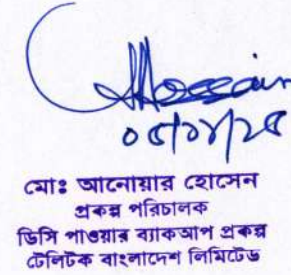 Hossain
মোঃ আনোয়ার হোসেন
প্রকল্প পরিচালক
ডিসি পাওয়ার ব্যাকআপ প্রকল্প
টেলিটক বাংলাদেশ লিমিটেড